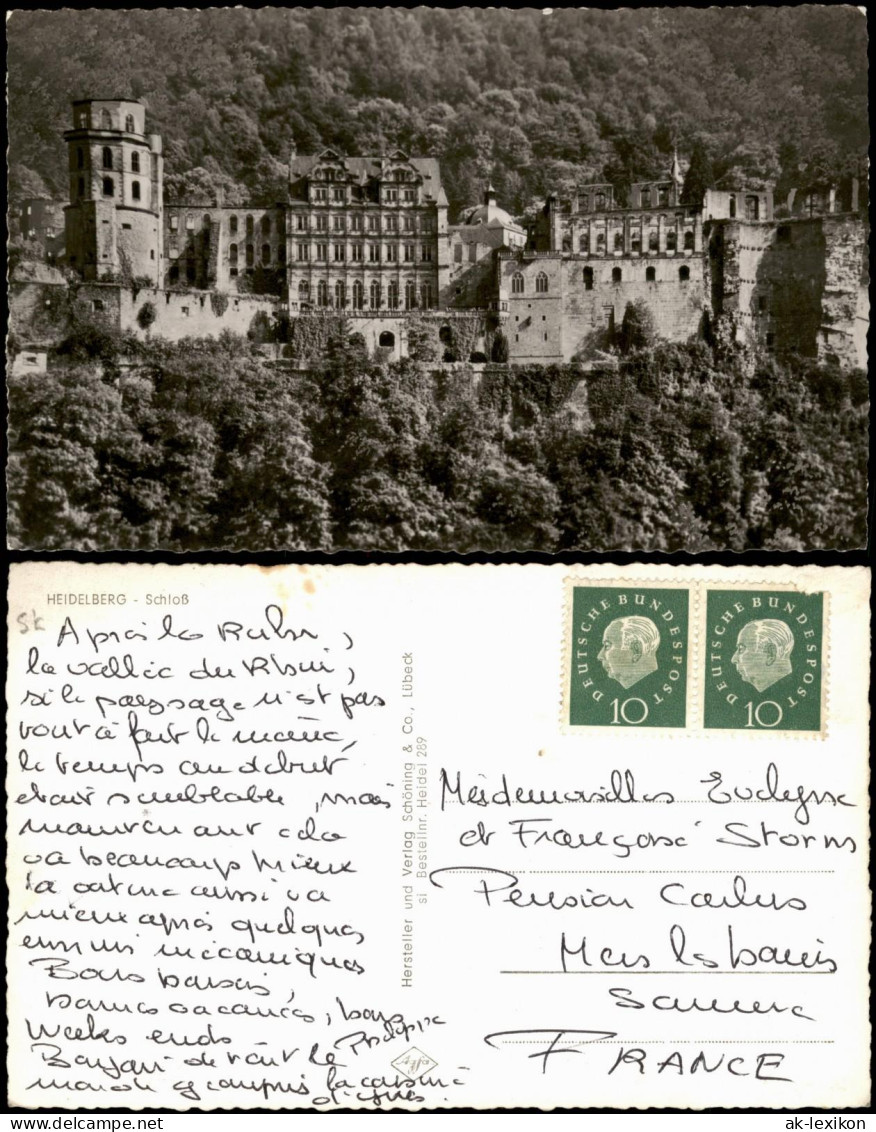 HEIDELBERG - Schloß
Sk
Après la Ruhr,
la vallée du Rhin,
si le paysage n'est pas
tout à fait le même,
le temps au début
était semblable, mais
maintenant cela
va beaucoup mieux
la
aussi va
mieux après quelques
ennuis mécaniques
Bons baisers,
bonnes vacances, bons
Weeks ends
Bonjour de tout le
monde y compris la
Philippe
Hersteller und Verlag Schöning & Co., Lübeck
si Bestellnr. Heidel 289
Agfa
DEUTSCHE BUNDESPOST
10
DEUTSCHE BUNDESPOST
10
Mesdemoiselles Evelyne
et Françoise Storms
Pension
Mers les bains
Somme
FRANCE
ak-lexikon